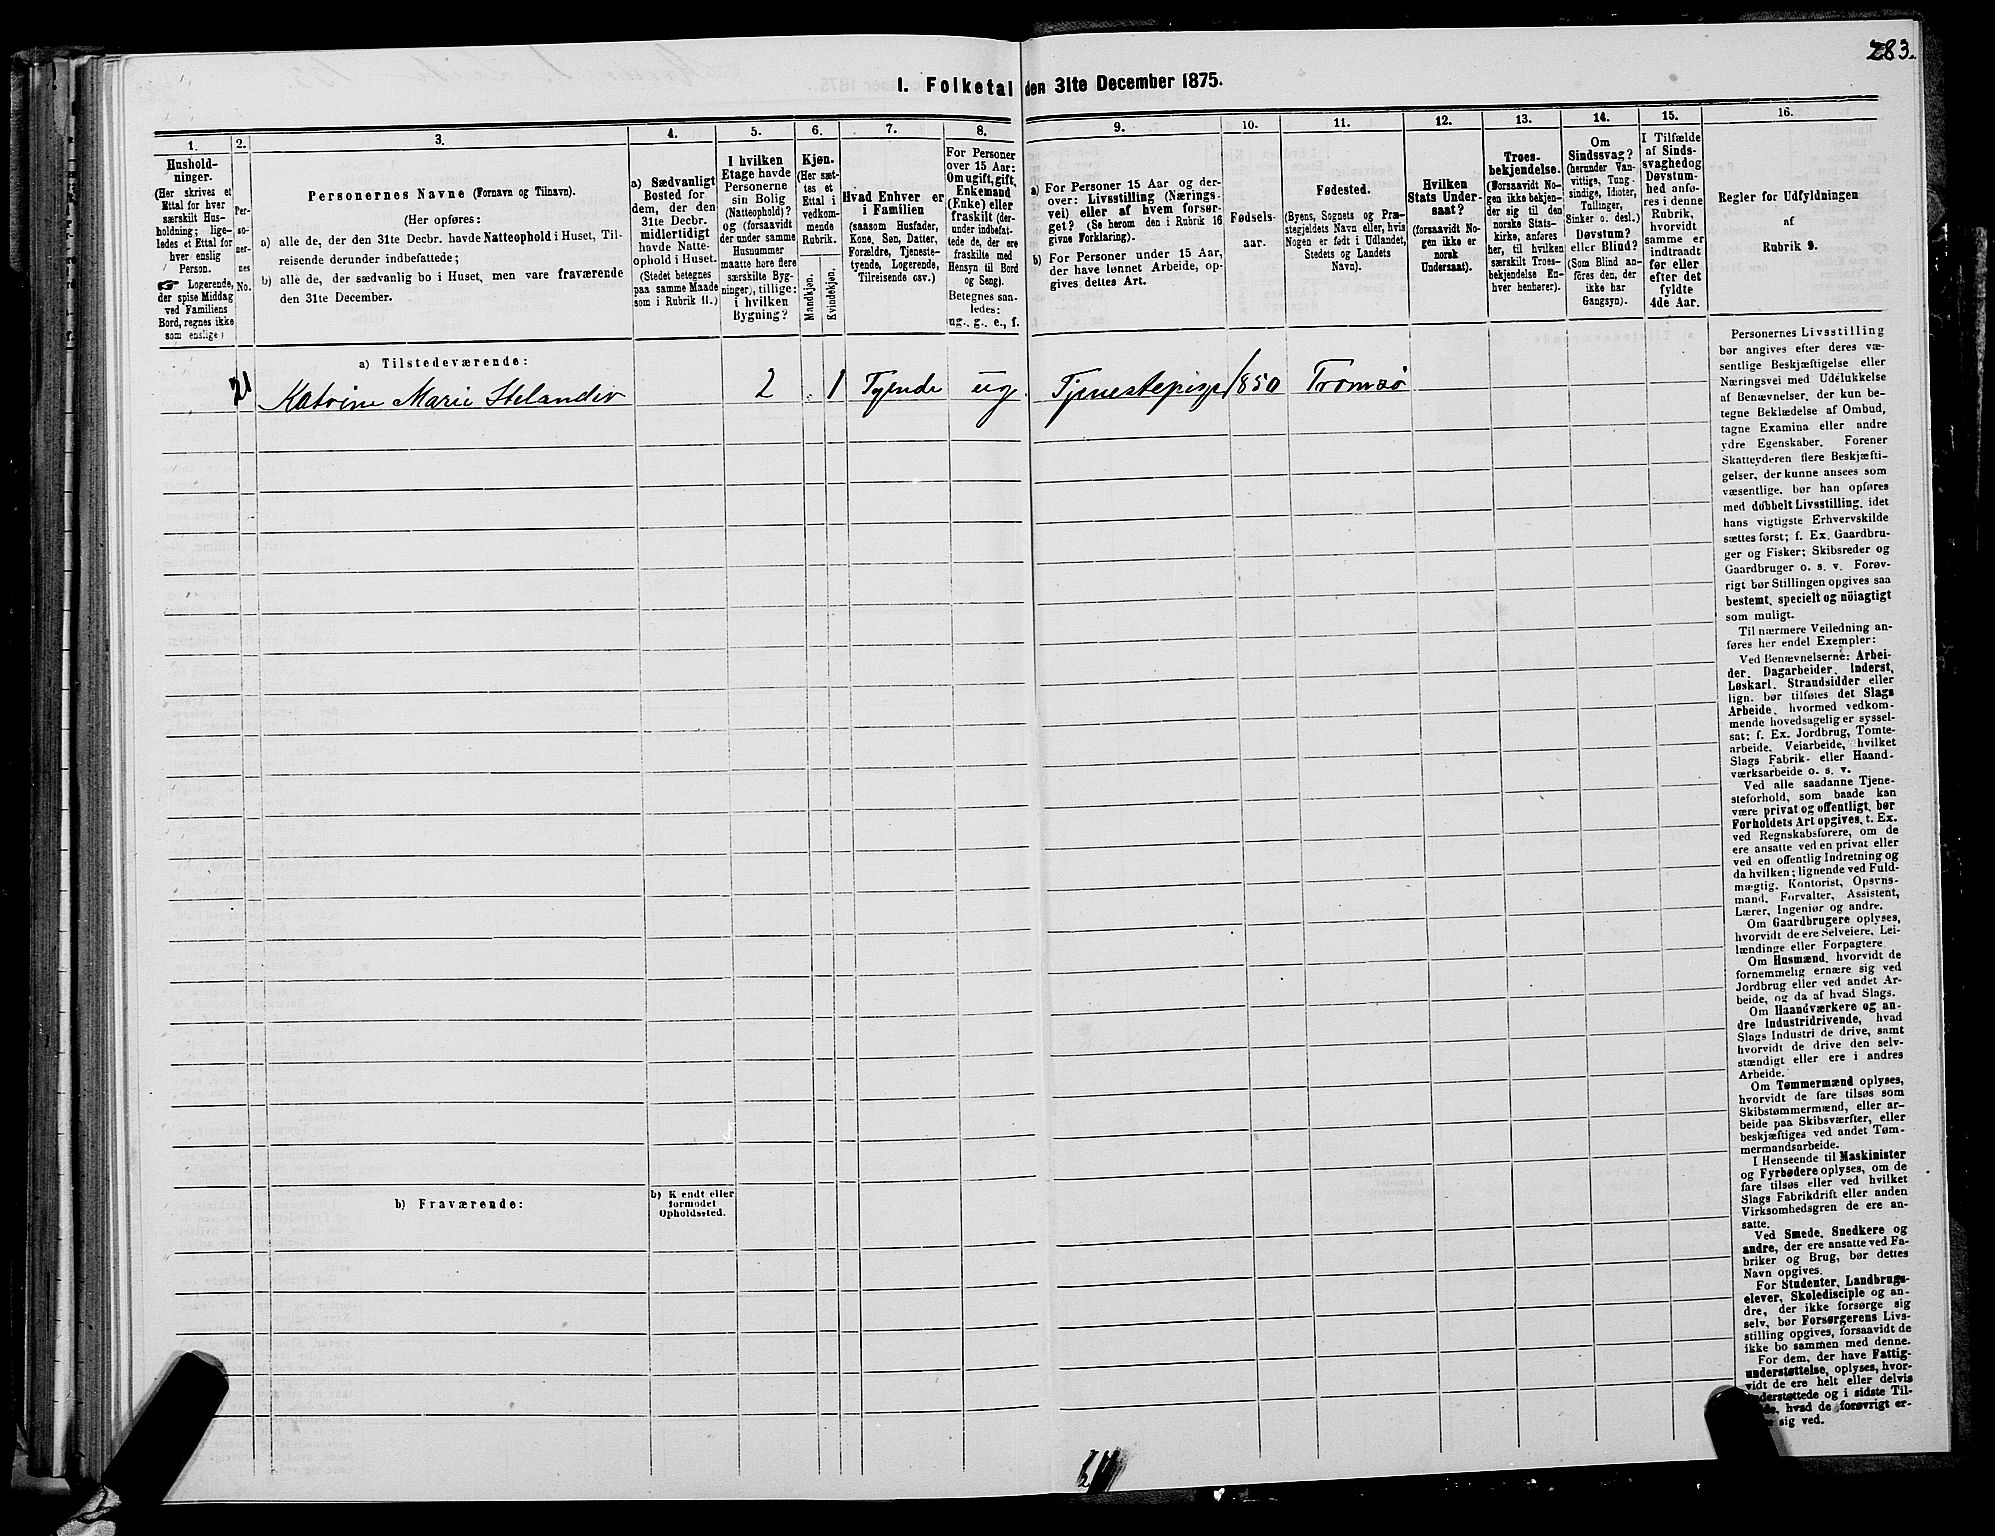 283.
I. Folketal den 31te December 1875.
1.
2.
3.
4.
5.
6.
7.
8.
9.
10.
11.
12.
13.
14.
15.
16.
Hushold-
ninger.
(Her skrives et
Ettal for hver
særskilt Hus-
holdning; lige-
ledes et Ettal for
hver enslig
Person.
☞ Logerende,
der spise Middag
ved Familiens
Bord, regnes ikke
som enslige)
Per-
so-
ner-
nes
No.
Personernes Navne (Fornavn og Tilnavn).
(Her opføres:
a) alle de, der den 31te Decbr. havde Natteophold i Huset, Til-
reisende derunder indbefattede;
b) alle de, der sædvanlig bo i Huset, men vare fraværende
den 31te December.
a) Sædvanligt
Bosted for
dem, der den
31te Decbr.
midlertidigt
havde Natte-
ophold i Huset.
(Stedet betegnes
paa samme Maade
som i Rubrik 11.)
I hvilken
Etage havde
Personerne
sin Bolig
(Natteophold)?
og (forsaavidt
der under samme
Husnummer
maatte høre flere
særskilte Byg-
ninger), tillige:
i hvilken
Bygning?
Kjøn.
(Her sæt-
tes et
Ettal i
vedkom-
mende
Rubrik.
Mandkjøn.
Kvindekjøn.
Hvad Enhver er
i Familien
(saasom Husfader,
Kone, Søn, Datter,
Forældre, Tjeneste-
tyende, Logerende,
Tilreisende osv.)
For Personer
over 15 Aar:
Om ugift, gift,
Enkemand
(Enke) eller
fraskilt (der-
under indbefat-
tede de, der ere
fraskilte med
Hensyn til Bord
og Seng).
Betegnes saa-
ledes:
ug., g., e., f.
a) For Personer 15 Aar og der-
over: Livsstilling (Nærings-
vei) eller af hvem forsør-
get? (Se herom den i Rubrik 16
givne Forklaring).
b) For Personer under 15 Aar,
der have lønnet Arbeide, op-
gives dettes Art.
Fødsels-
aar.
Fødested.
(Byens, Sognets og Præ-
stegjeldets Navn eller, hvis
Nogen er født i Udlandet,
Stedets og Landets
Navn).
Hvilken
Stats Under-
saat?
(forsaavidt No-
gen ikke er
norsk
Undersaat).
Troes-
bekjendelse.
(Forsaavidt No-
gen ikke bekjen-
der sig til den
norske Stats-
kirke, anføres
her, til hvilken
særskilt Troes-
bekjendelse En-
hver henhører).
Om
Sindssvag?
(herunder Van-
vittige, Tung-
sindige, Idioter,
Tullinger,
Sinker o. desl.)
Døvstum?
eller Blind?
(Som Blind an-
føres den, der
ikke har
Gangsyn).
I Tilfælde
af Sinds-
svaghed og
Døvstum-
hed anfø-
res i denne
Rubrik,
hvorvidt
samme er
indtraadt
før eller
efter det
fyldte
4de Aar.
Regler for Udfyldningen
af
Rubrik 9.
a) Tilstedeværende:
21 Katrine Marie Stelander 2 1 Tyende ug. Tjenestepige 1850 Tromsø
b) Fraværende:
b) Kjendt eller
formodet
Opholdssted.
Personernes Livsstilling
bør angives efter deres væ-
sentlige Beskjæftigelse eller
Næringsvei med Udelukkelse
af Benævnelser, der kun be-
tegne Beklædelse af Ombud,
tagne Examina eller andre
ydre Egenskaber. Forener
Skatteyderen flere Beskjæfti-
gelser, der kunne ansees som
væsentlige, bør han opføres
med dobbelt Livsstilling, idet
hans vigtigste Erhvervskilde
sættes først; f. Ex. Gaardbru-
ger og Fisker; Skibsreder og
Gaardbruger o. s. v. Forøv-
rigt bør Stillingen opgives saa
bestemt, specielt og nöiagtigt
som muligt.
Til nærmere Veiledning an-
føres her endel Exempler:
Ved Benævnelserne: Arbei-
der, Dagarbeider Inderst,
Løskarl, Strandsidder eller
lign. bør tilføies det Slags
Arbeide, hvormed vedkom-
mende hovedsagelig er syssel-
sat; f. Ex. Jordbrug, Tomte-
arbeide, Veiarbeide, hvilket
Slags Fabrik- eller Haand-
værksarbeide o. s. v.
Ved alle saadanne Tjene-
steforhold, som baade kan
være privat og offentligt, bør
Forholdets Art opgives, t. Ex.
ved Regnskabsførere, om de
ere ansatte ved en privat eller
ved en offentlig Indretning og
da hvilken; lignende ved Fuld-
mægtig, Kontorist, Opsyns-
mand, Forvalter, Assistent,
Lærer, Ingeniør og andre.
Om Gaardbrugere oplyses,
hvorvidt de ere Selveiere, Lei-
lændinge eller Forpagtere
Om Husmænd, hvorvidt de
fornemmelig ernære sig ved
Jordbrug eller ved andet Ar-
beide, og da af hvad Slags.
Om Haandværkere og an-
dre Industridrivende, hvad
Slags Industri de drive, samt
hvorvidt de drive den selv-
stændigt eller ere i andres
Arbeide.
Om Tømmermænd oplyses,
hvorvidt de fare tilsøs som
Skibstømmermænd, eller ar-
beide paa Skibsværfter, eller
beskjæftiges ved andet Tøm-
mermandsarbeide.
I Henseende til Maskinister
og Fyrbødere oplyses, om de
fare tilsøs eller ved hvilket
Slags Fabrikdrift eller anden
Virksomhedsgren de ere an-
satte.
Ved Smede, Snedkere og
andre, der ere ansatte ved Fa-
briker og Brug, bør dettes
Navn opgives.
For Studenter, Landbrugs-
elever, Skoledisciple og an-
dre, der ikke forsørge sig
selv, bør Forsørgerens Livs-
stilling opgives, forsaavidt de
ikke bo sammen med denne.
For dem, der have Fattig-
understøttelse, oplyses, hvor-
vidt de ere helt eller delvis
understøttede og i sidste Til-
hvad de forøvrigt er-
sig ved.